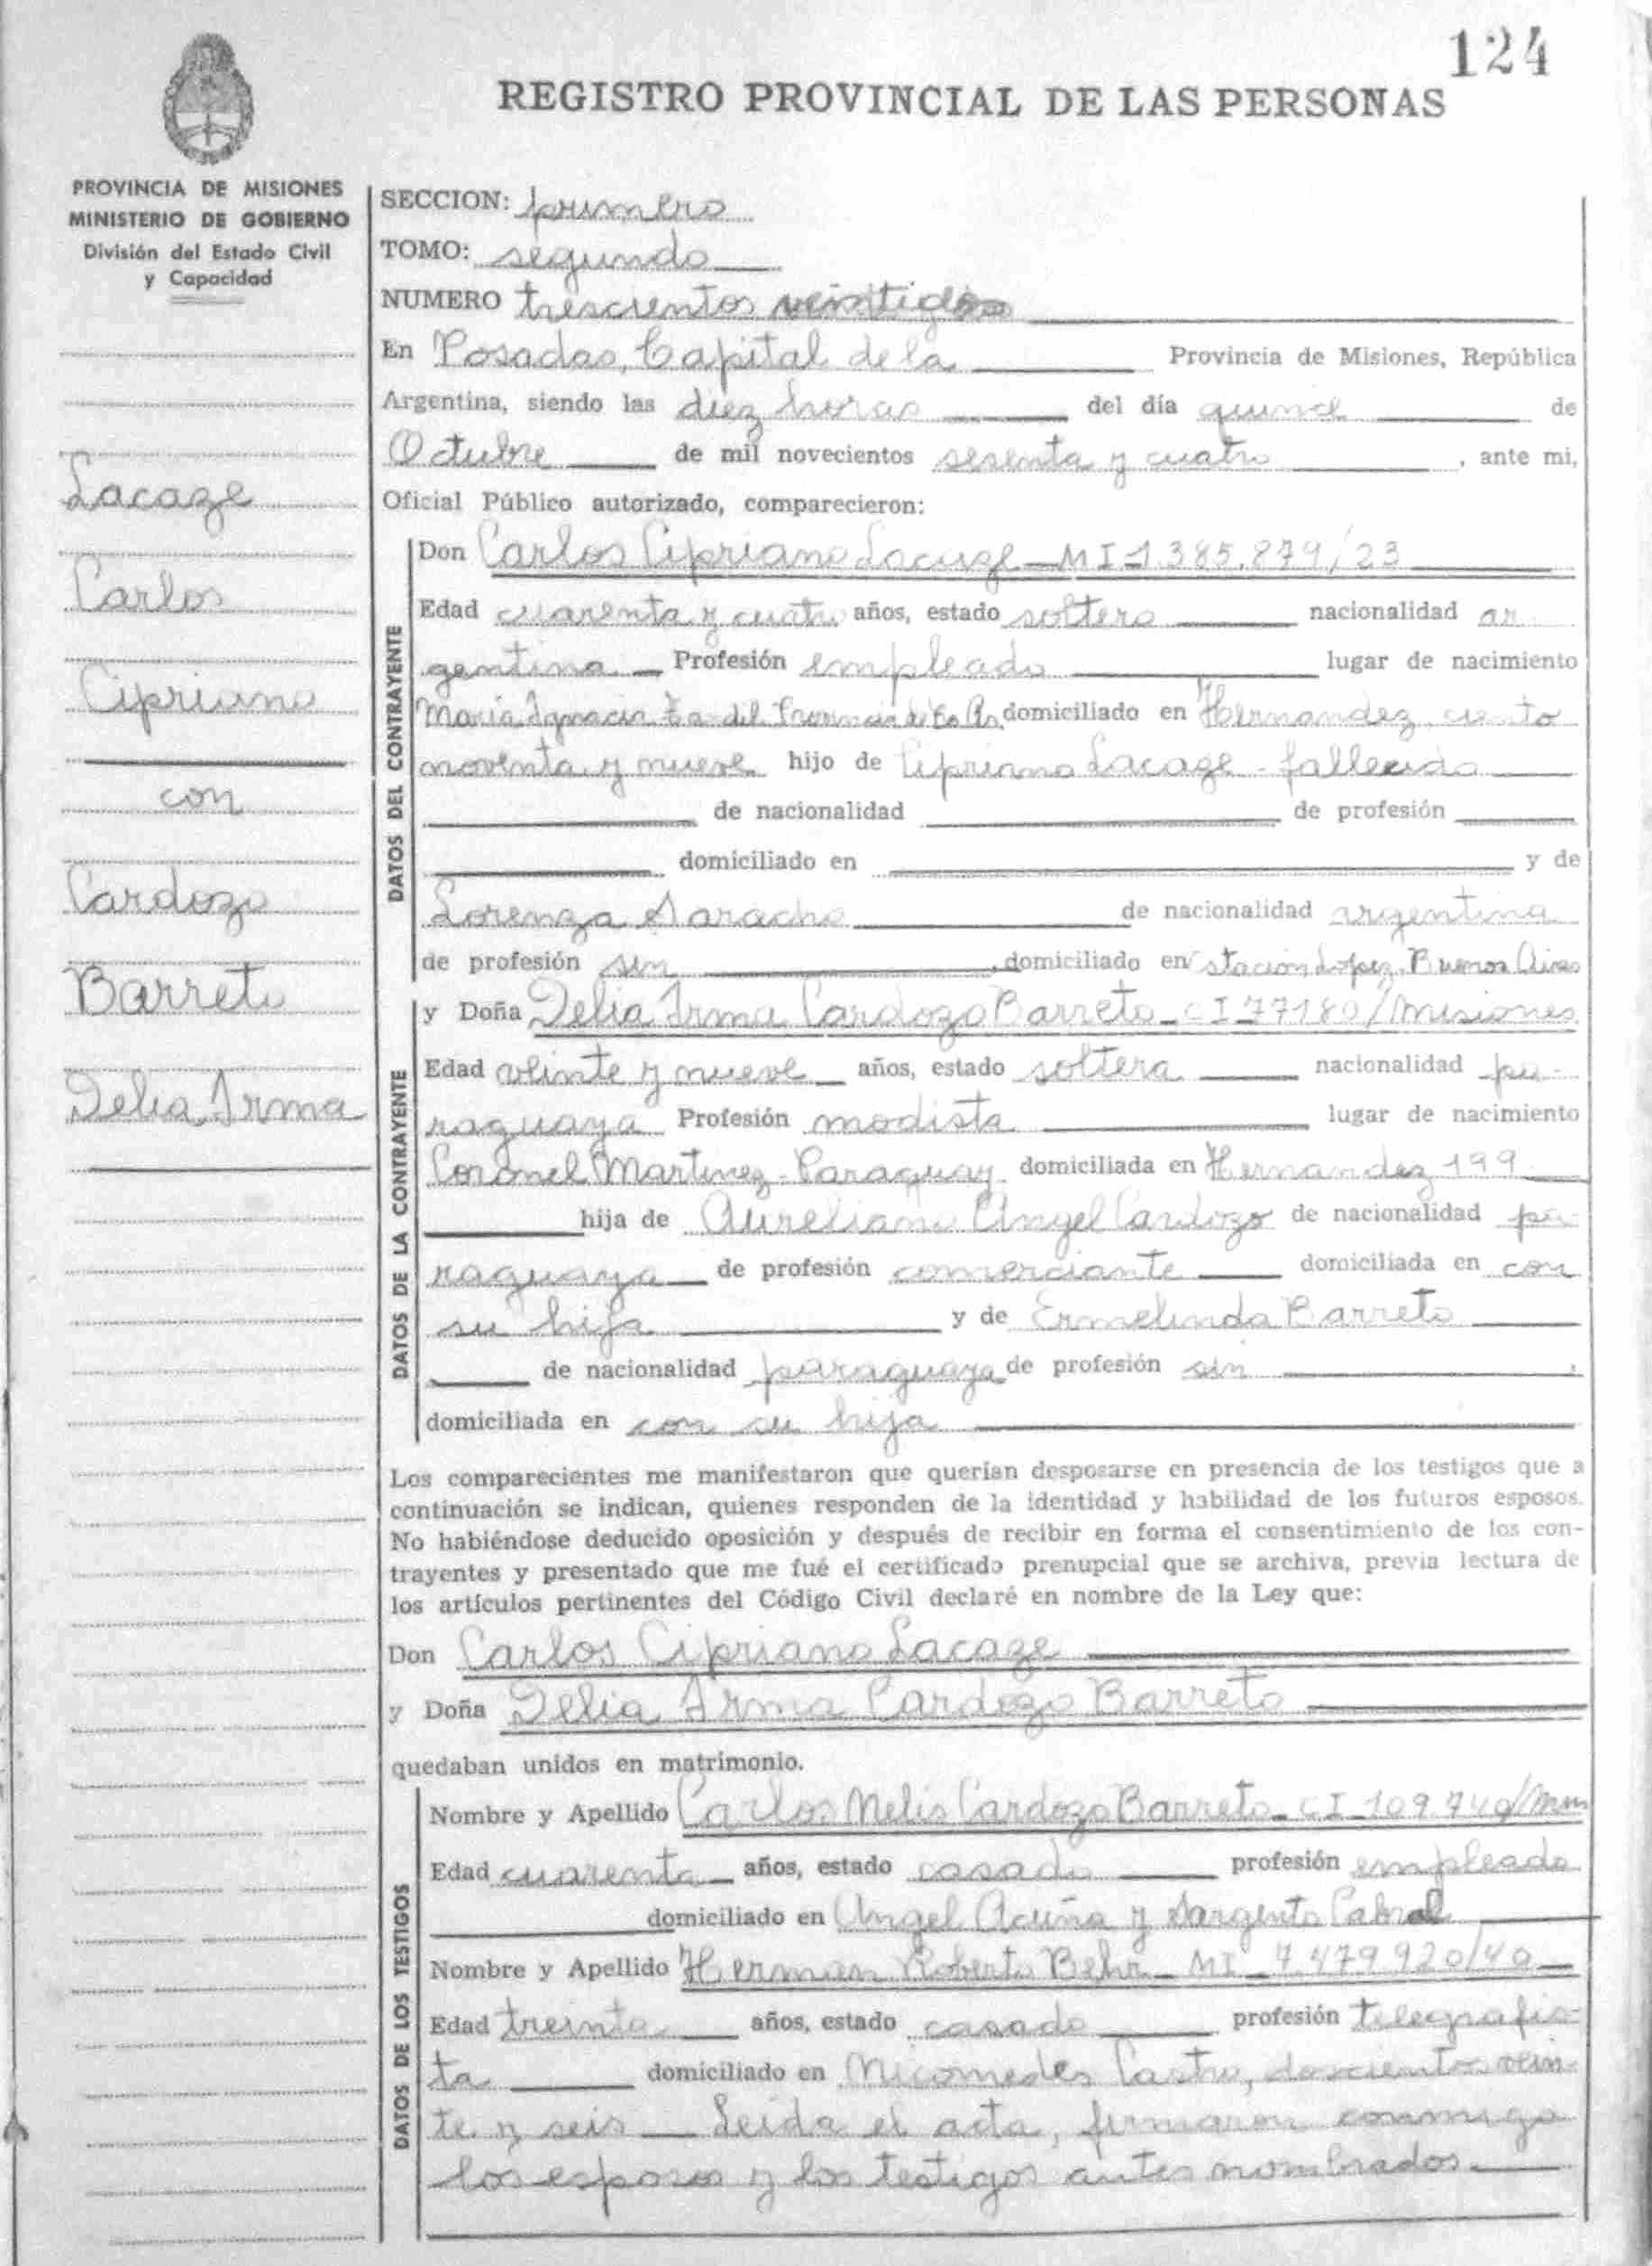 124
REGISTRO PROVINCIAL DE LAS PERSONAS
PROVINCIA DE MISIONES
MINISTERIO DE GOBIERNO
División del Estado Civil
y Capacidad
Lacaze
Carlos
Cipriano
con
Cardozo
Barreto
Delia Irma
SECCION: primero
TOMO: segundo
NUMERO trescientos veintidos
En Posadas, Capital de la Provincia de Misiones, República
Argentina, siendo las diez horas del día quince de
Octubre de mil novecientos sesenta y cuatro, ante mi,
Oficial Público autorizado, comparecieron:
DATOS DEL CONTRAYENTE
Don Carlos Cipriano Lacaze - MI 1.385.879/23
Edad cuarenta y cuatro años, estado soltero nacionalidad ar
gentina Profesión empleado lugar de nacimiento
Maria Ignacia domiciliado en Hernandez ciento
noventa y nueve hijo de Cipriano Lacaze - fallecido
de nacionalidad de profesión
domiciliado en y de
Lorenza Saracho de nacionalidad argentina
de profesión sin, domiciliado en stación Lopez, Buenos Aires
DATOS DE LA CONTRAYENTE
y Doña Delia Irma Cardozo Barreto - CI 77180/Misiones
Edad veinte y nueve años, estado soltera nacionalidad pa-
raguaya Profesión modista lugar de nacimiento
Coronel Martinez - Paraguay domiciliada en Hernandez 199
hija de Aureliano Angel Cardozo de nacionalidad pa-
raguaya de profesión comerciante domiciliada en con
su hija y de Ermelinda Barreto
de nacionalidad paraguaya de profesión sin,
domiciliada en con su hija
Los comparecientes me manifestaron que querían desposarse en presencia de los testigos que a
continuación se indican, quienes responden de la identidad y habilidad de los futuros esposos.
No habiéndose deducido oposición y después de recibir en forma el consentimiento de los con-
trayentes y presentado que me fué el certificado prenupcial que se archiva, previa lectura de
los artículos pertinentes del Código Civil declaré en nombre de la Ley que:
Don Carlos Cipriano Lacaze
y Doña Delia Irma Cardozo Barreto
quedaban unidos en matrimonio.
DATOS DE LOS TESTIGOS
Nombre y Apellido Carlos Melis Cardozo Barreto - CI 109.740/mm
Edad cuarenta años, estado casado profesión empleado
domiciliado en Angel Acuña y Sargento Cabral
Nombre y Apellido Herman Roberto Behr - MI 7.479.920/40
Edad treinta años, estado casado profesión telegrafis-
ta domiciliado en Nicomedes Castro, doscientos vein-
te y seis - Leida el acta, firmaron conmigo
los esposos y los testigos antes nombrados.